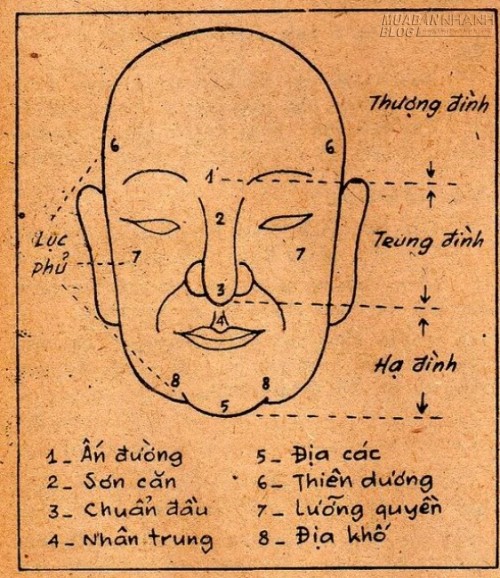 MUABANNHANH
BLOG
Thượng đình
6
6
1
2
Lục
phủ
7
7
Trung đình
3
4
Hạ đình
8
8
5
1_ Ấn đường
2_ Sơn căn
3_ Chuẩn đầu
4_ Nhân trung
5_ Địa các
6_ Thiên dương
7_ Lưỡng quyền
8_ Địa khố